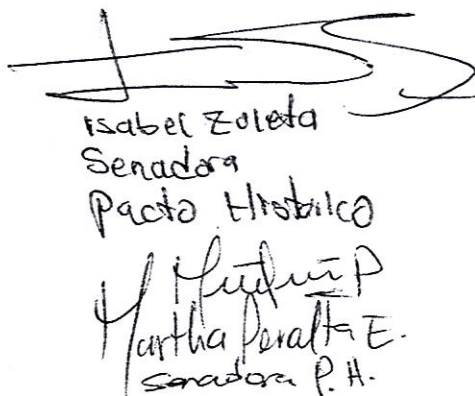 Isabel Zuleta
Senadora
Pacto Histórico
Martha Peralta E.
Senadora P.H.